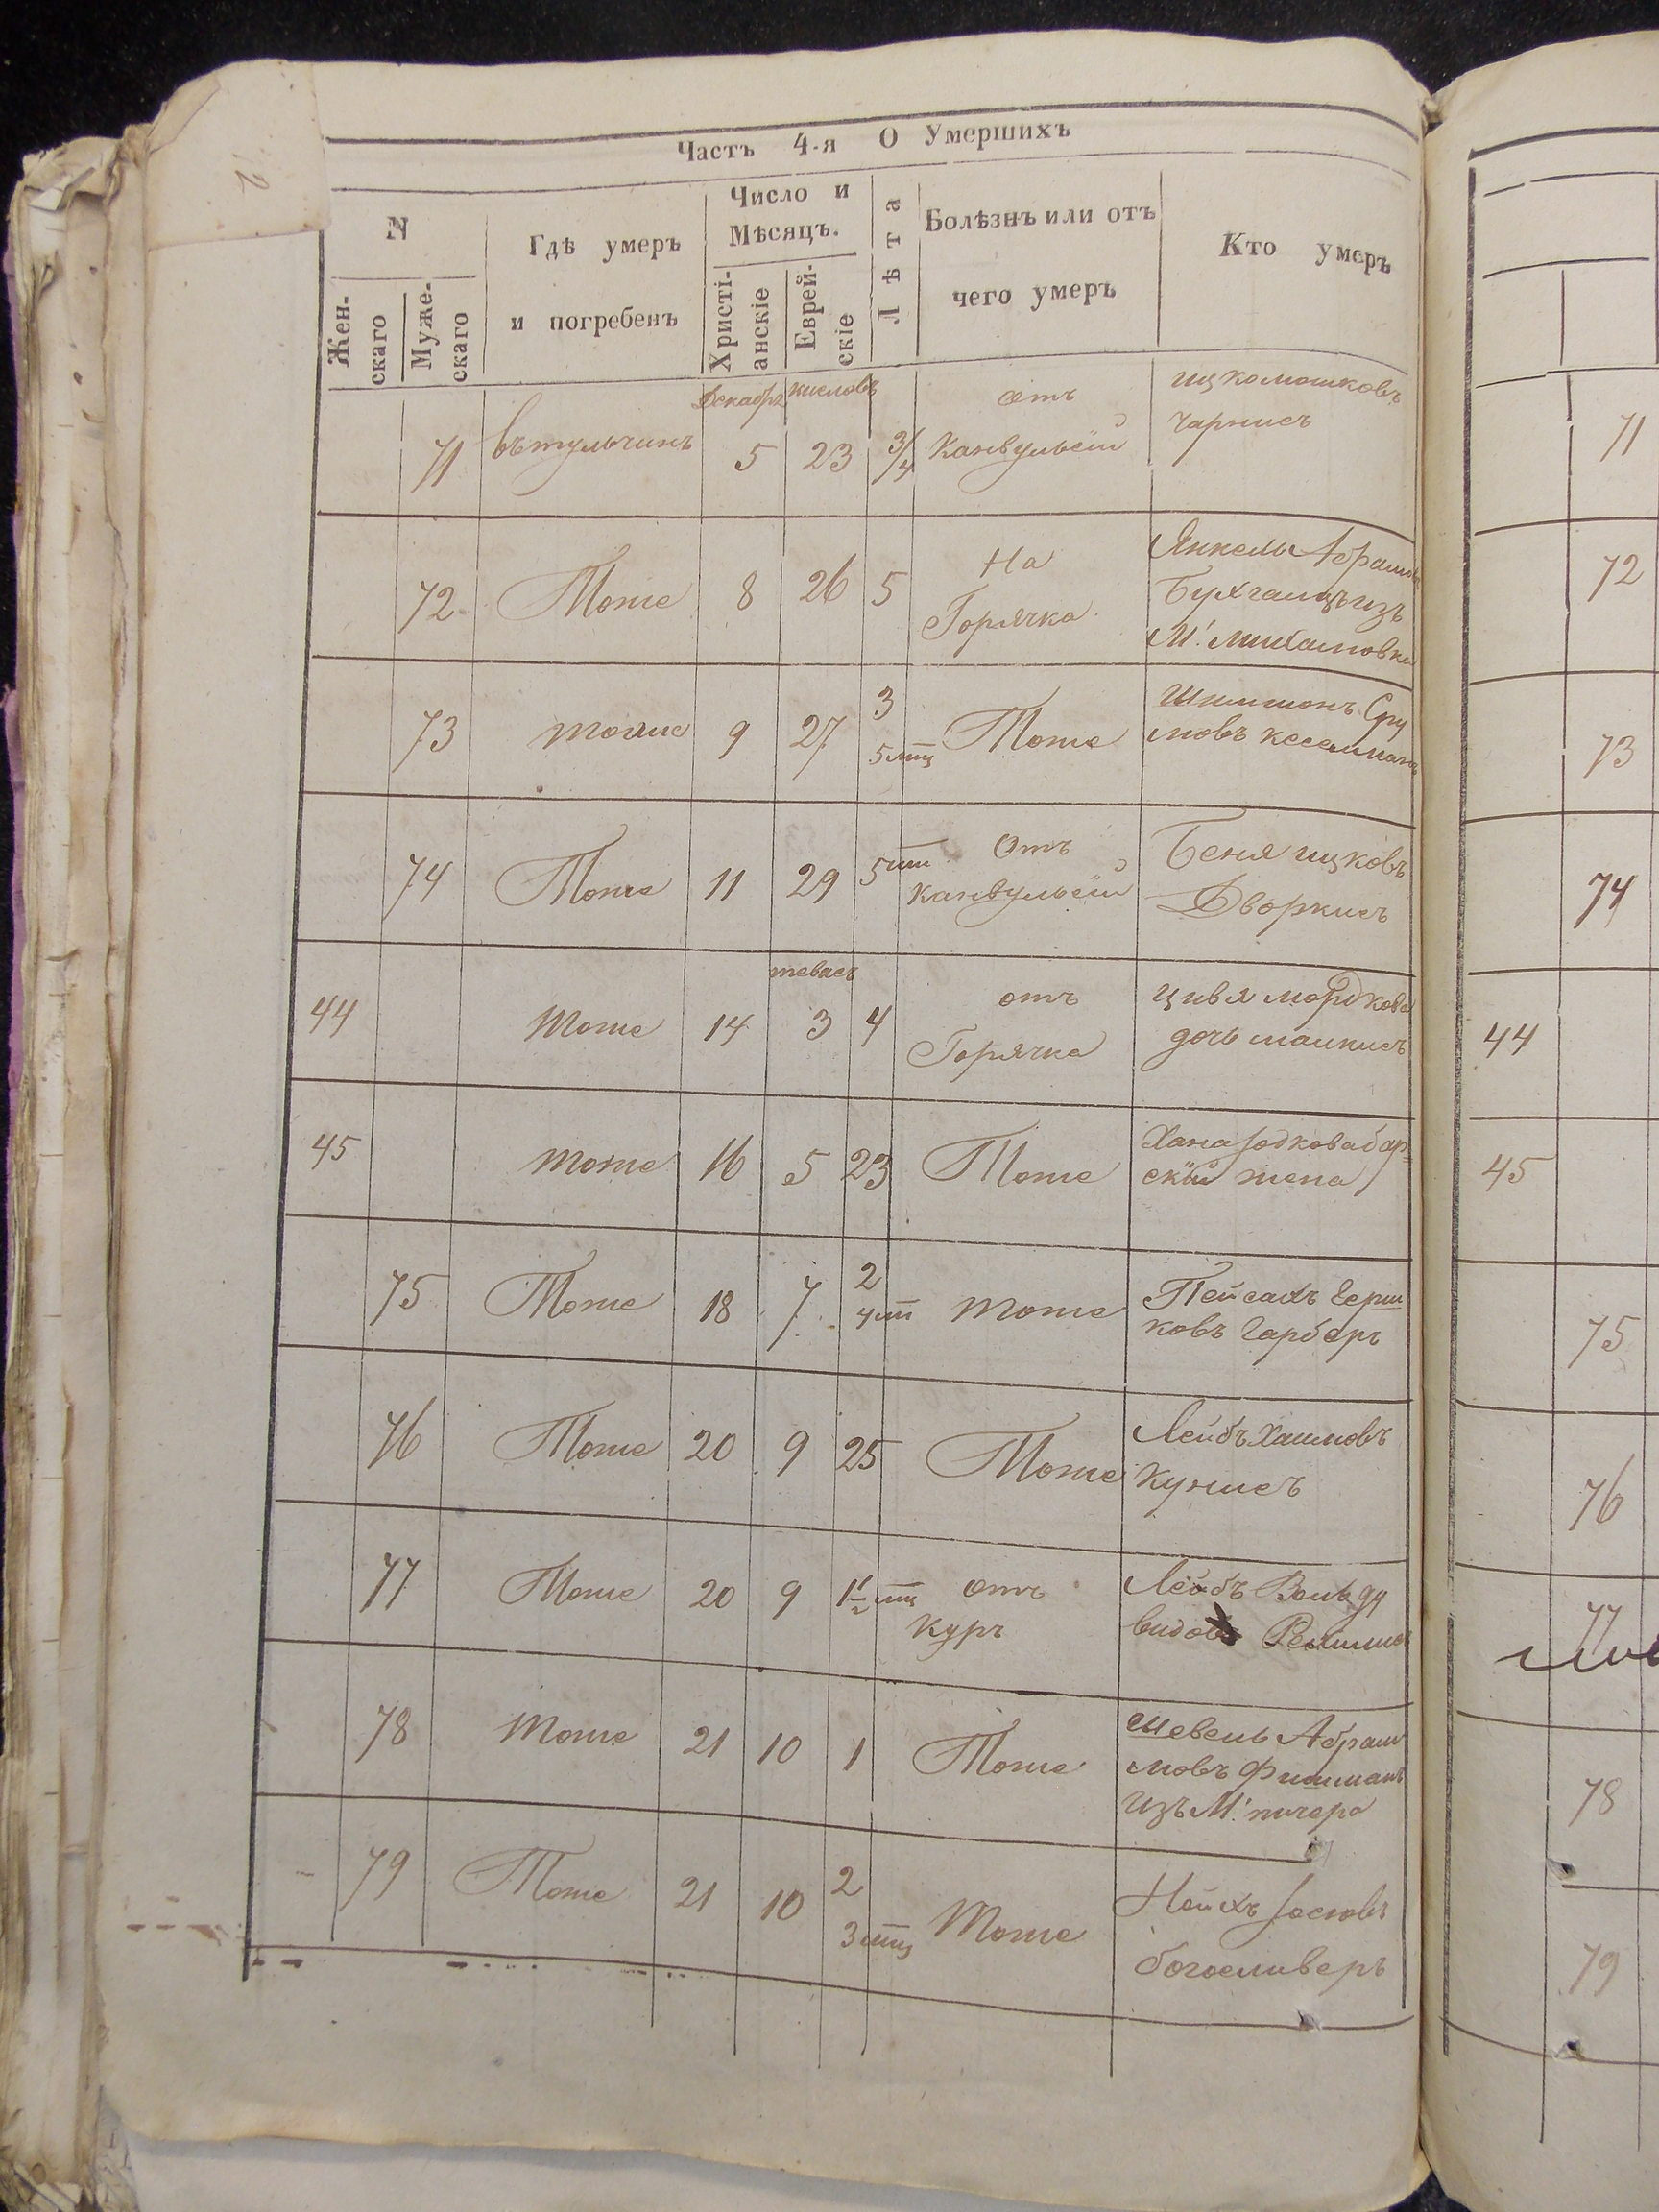 Часть 4-я О Умершихъ
N
Жен-
скаго
Муже-
скаго
Гдѣ умеръ
и погребенъ
Число и
Мѣсяцъ.
Христі-
анскіе
Еврей-
скіе
Лѣта
Болѣзнь или отъ
чего умеръ
Кто умеръ
Декабря кисловъ
71 въ тульчинъ 5 23 3/4 отъ
Канвульсій
ицко мошковъ
Чарнисъ
72 Тоже 8 26 5 На
Горячка
Янкель Абрамов
Бухгалцъ изъ
М. михаловки
73 тоже 9 27 3
5 мц Тоже
Шлимонъ Сру
ловъ кесельман
74 Тоже 11 29 5 м отъ
канвульсій
Беня ицковъ
Дворкисъ
тевасъ
44 тоже 14 3 4 отъ
Горячка
цивя мордкова
дочь малкисъ
45 тоже 16 5 23 Тоже
Хана Іодкова бар-
скій жена
75 Тоже 18 7 2
4 м тоже
Пейсахъ Герш
ковъ Гарберъ
76 Тоже 20 9 25 Тоже
Лейбъ Хаимовъ
кунисъ
77 Тоже 20 9 1 1/2 мц отъ
Куръ
Лейбъ Вольъ ду
видовъ
78 тоже 21 10 1 Тоже
Абрам
мовъ Фишманъ
изъ М. пичера
79 Тоже 21 10 2
3 мц Тоже
Нойхъ Іосіовъ
богосливеръ
71
72
73
74
44
45
75
76
77
78
79